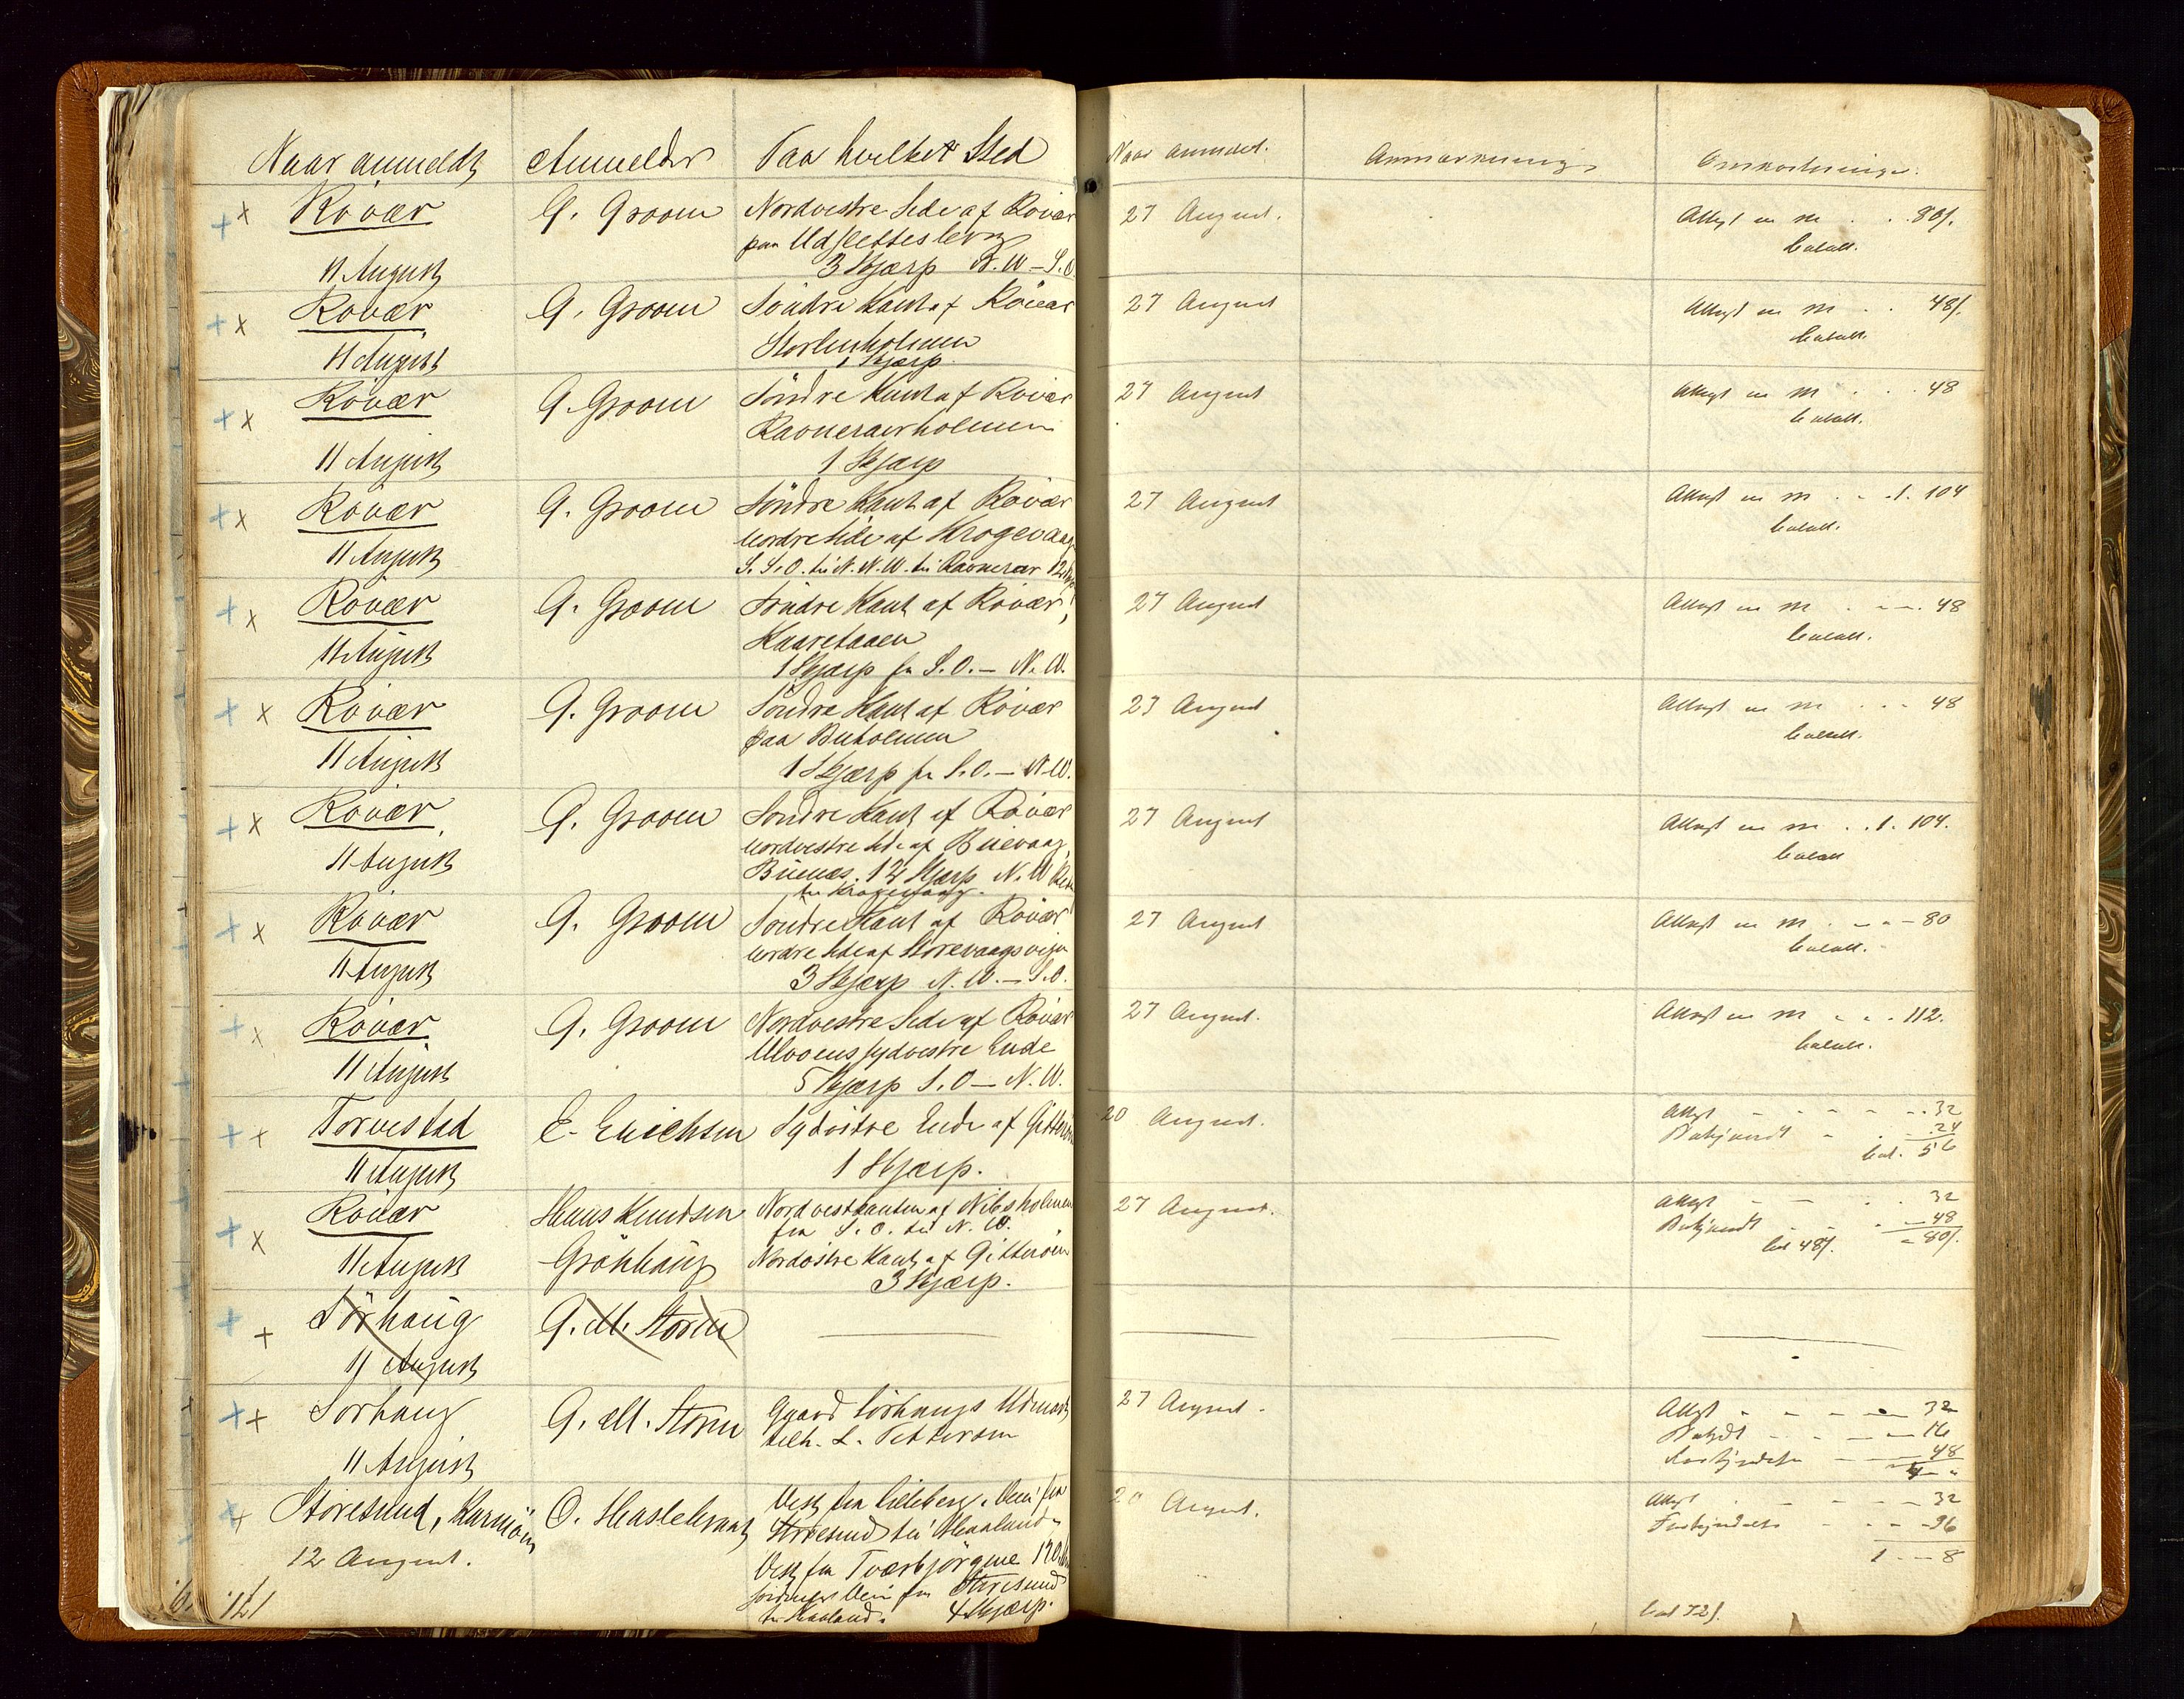 Naar anmeldt Anmelder Paa hvilket Sted
Rövær G. Groom Nordvestre Side af Rövær
paa Udsletteslervg
11 August 3 Skjærp N.W – S.O
Rövær G. Groom Söndre Kant af Rövær
Storlenholmen
11 August 1 Skjærp
Rövær G. Groom Söndre Kant af Rövær
Ravnerairholmen
11 August 1 Skjærp
Rövær G. Groom Söndre Kant af Rövær
nordre Side af Krogevaag
11 August S.S.O. til N.N.W. til Ravnerær 12
Rövær G. Groom Söndre Kant af Rövær,
Kaaretaaen
11 August 1 Skjærp fr S.O. – N.W.
Rövær G. Groom Söndre Kant af Rövær
paa Buholmen
11 August 1 Skjærp fr S.O. – N.W.
Rövær G. Groom Söndre Kant af Rövær
nordvestre Side af Buevaag,
11 August Buenæs. 12 Skjærp N.W
til Krogevaag.
Rövær G. Groom Söndre Kant af Rövær
nordre Side af Storevaagsvejen
11 August 3 Skjærp N.W. – S.O.
Rövær G. Groom Nordvestre Side af Rövær
Ulooens sydvestre Ende
11 August 5 Skjærp S.O – N.W.
Torvestad E. Erichsen Sydöstre Ende af Gitterön
11 August 1 Skjærp.
Rövær Hans Knudsen Nordvestkanten af Nibsholmen
fra S.O. til N.W.
11 August Grönhaug Nordöstre Kant af Gitteröen
3 Skjærp.
Sörhaug G. M. Storm
11 August
Sörhaug G. M. Storm Gaard Sörhaugs Udmark
tilh. L. Pettersen
11 August
Storesund, Karmöen O. Haslebraat Vest fra Lilleberg, Vei fra
Storesund til Haaland
12 August. Vest fra Tværbjörgene 170
Vei fra Storesund
til Haaland. 4 Skjærp.
121
Naar anmeldt. Anmærkning Omkostninger.
27 August. Attest m M . . . 80/.
betalt.
27 August Attest m M . . 48/.
betalt.
27 August Attest m M . . . 48
betalt.
27 August Attest m M . . . 1. 104
betalt.
27 August Attest m M . . . 48
betalt.
27 August Attest m M . . . 48
betalt.
27 August Attest m M . . 1. 104.
betalt
27 August Attest m M . . . 80
betalt.
27 August. Attest m M . . . 112.
betalt.
20 August. Attest . . . 32
Bekjendt . . . 24
bet. 56
27 August. Attest . . . 32
Bekjendt . . . 48
bet 48/. 80/.
27 August. Attest . . . 32
. . . 16
. . . 48
20 August. Attest . . . 32
. . . 96
1 – 8
bet 72/.